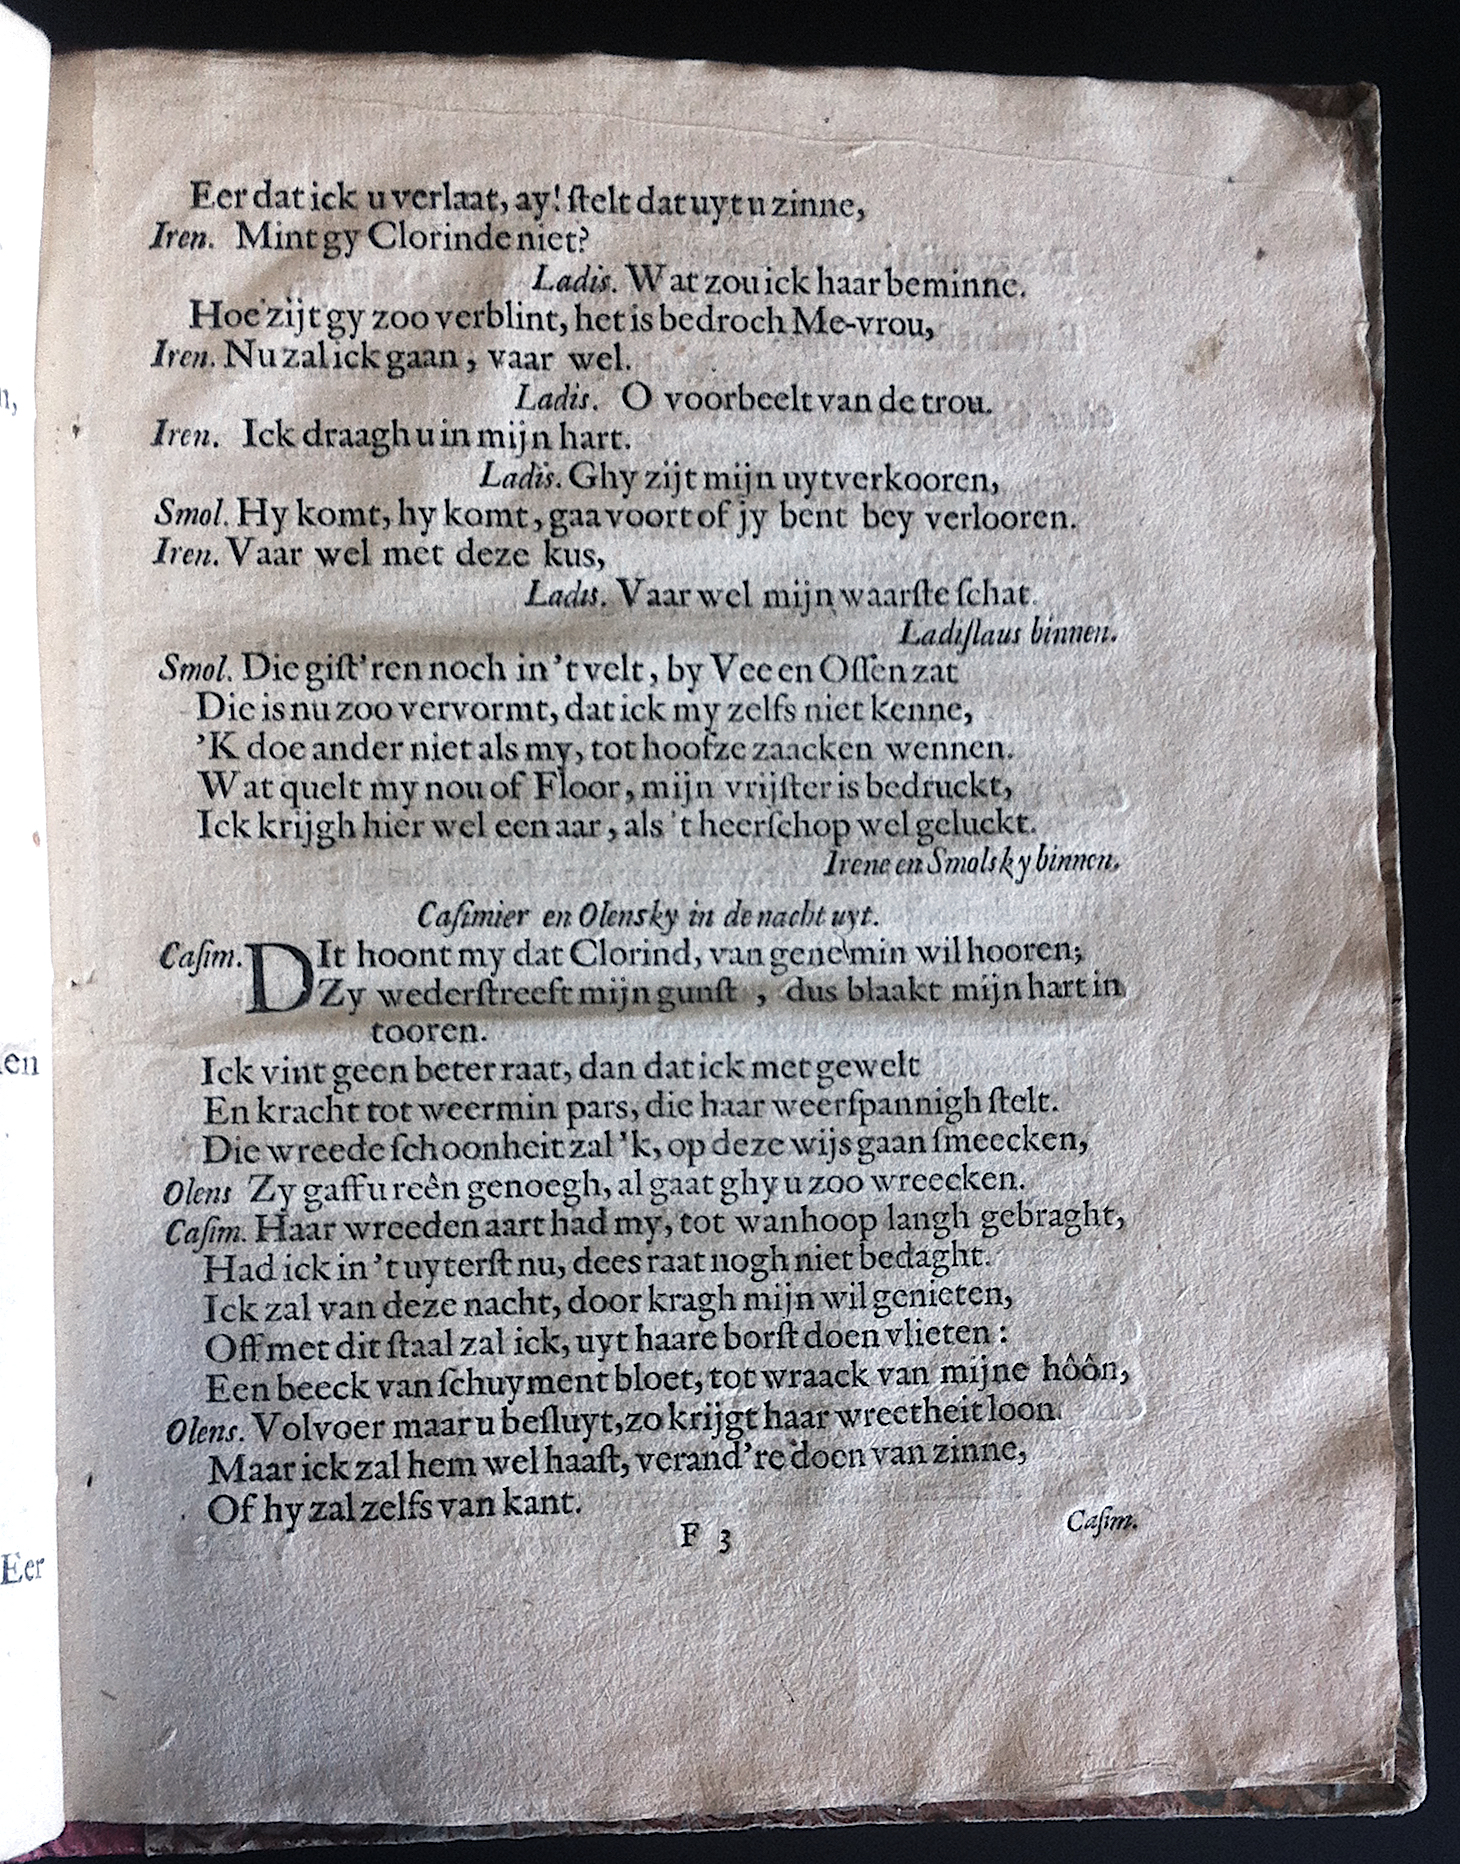 Eer dat ick u verlaat, ay! ſtelt dat uyt u zinne,
Iren. Mint gy Clorinde niet?
Ladis. Wat zou ick haar beminne.
Hoe zijt gy zoo verblint, het is bedroch Me-vrou,
Iren. Nu zal ick gaan, vaar wel.
Ladis. O voorbeelt van de trou.
Iren. Ick draagh u in mijn hart.
Ladis. Ghy zijt mijn uytverkooren,
Smol. Hy komt, hy komt, gaa voort of jy bent bey verlooren.
Iren. Vaar wel met deze kus,
Ladis. Vaar wel mijn waarſte ſchat.
Ladiſlaus binnen.
Smol. Die giſt'ren noch in 't velt, by Vee en Oſſen zat
Die is nu zoo vervormt, dat ick my zelfs niet kenne,
'K doe ander niet als my, tot hoofze zaacken wennen.
Wat quelt my nou of Floor, mijn vrijſter is bedruckt,
Ick krijgh hier wel een aar, als 't heerſchop wel geluckt.
Irene en Smolsky binnen.
Caſimier en Olensky in de nacht uyt.
Caſim. DIt hoont my dat Clorind, van gene min wil hooren;
Zy wederſtreeft mijn gunſt, dus blaakt mijn hart in
tooren.
Ick vint geen beter raat, dan dat ick met gewelt
En kracht tot weermin pars, die haar weerſpannigh ſtelt.
Die wreede ſchoonheit zal 'k, op deze wijs gaan ſmeecken,
Olens Zy gaff u reên genoegh, al gaat ghy u zoo wreecken.
Caſim. Haar wreeden aart had my, tot wanhoop langh gebraght,
Had ick in 't uyterſt nu, dees raat nogh niet bedaght.
Ick zal van deze nacht, door kragh mijn wil genieten,
Off met dit ſtaal zal ick, uyt haare borſt doen vlieten:
Een beeck van ſchuyment bloet, tot wraack van mijne hôôn,
Olens. Volvoer maar u beſluyt, zo krijgt haar wreetheit loon.
Maar ick zal hem wel haaſt, verand're doen van zinne,
Of hy zal zelfs van kant.
F 3
Caſim.
n,
en
Eer